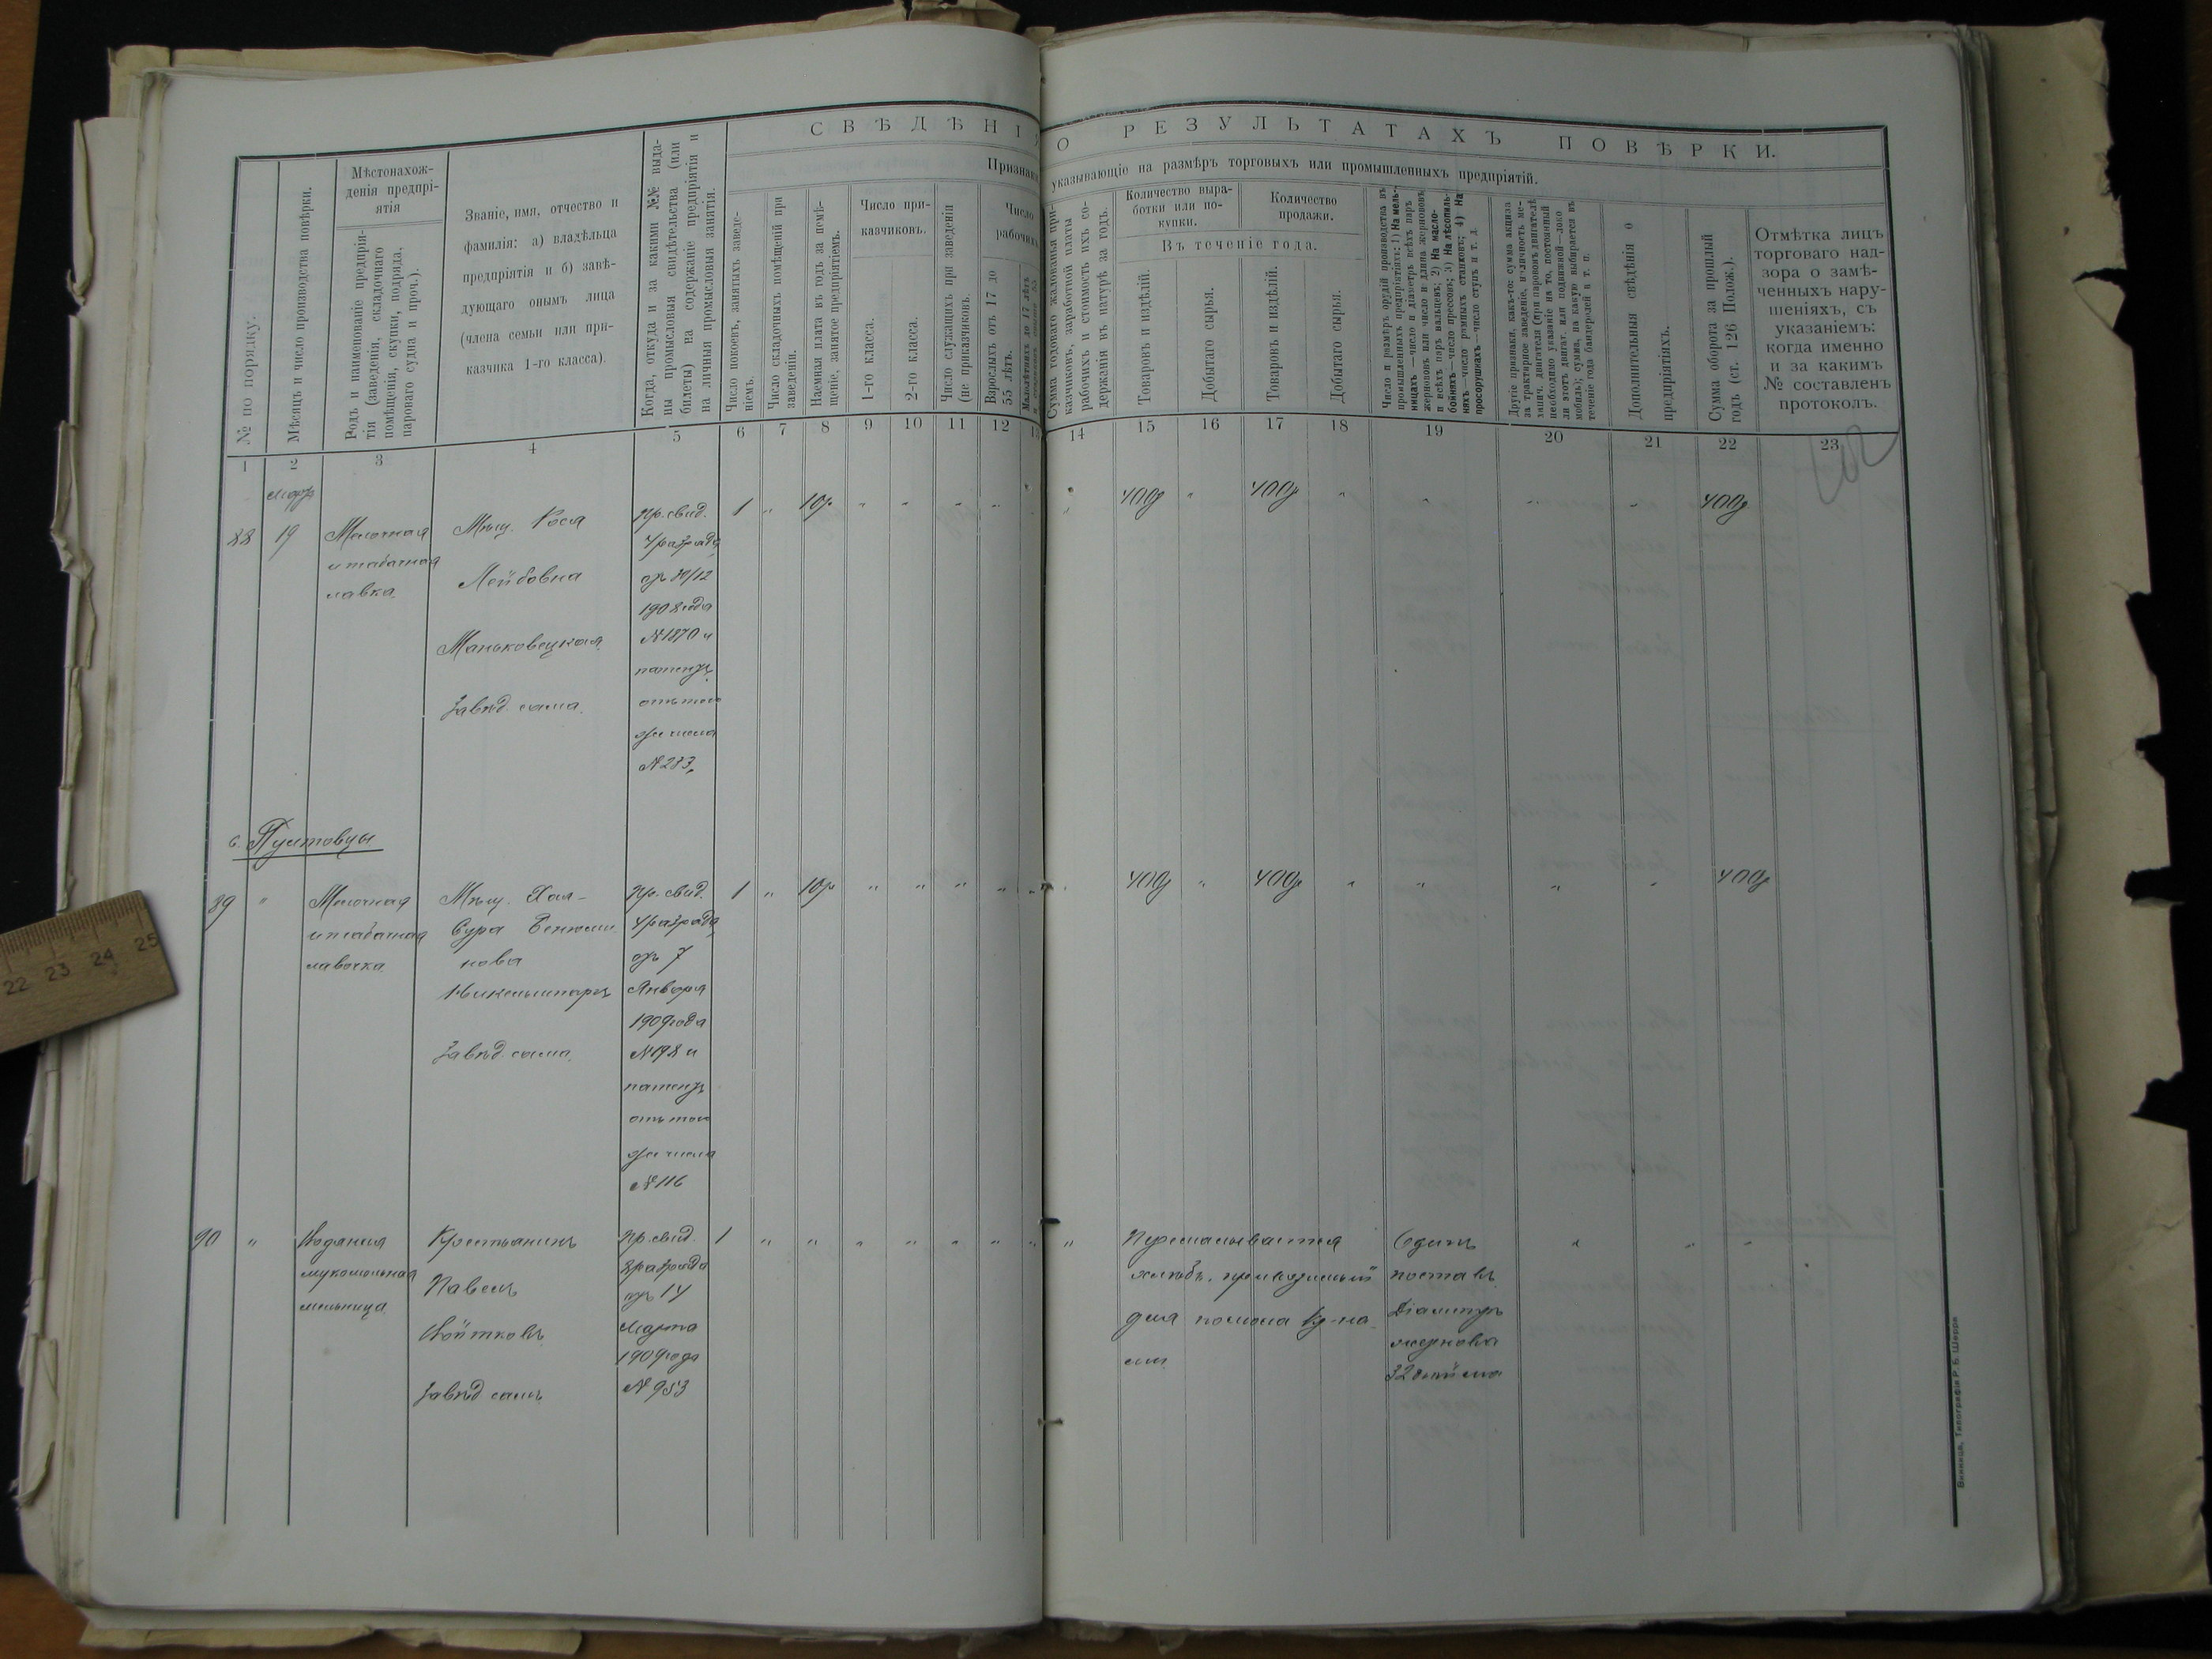 СВѢДѢНІЯ О РЕЗУЛЬТАТАХЪ ПОВѢРКИ.
указывающіе на размѣръ торговыхъ или промышленныхъ предпріятій.
№ по порядку.
Мѣсяцъ и число производства повѣрки.
Мѣстонахож-
денія предпрі-
ятія
Родъ и наименованіе предпрія-
тія (заведенія, складочнаго
помѣщенія, скупки, подряда,
парового судна и проч.).
Званіе, имя, отчество и
фамилія: а) владѣльца
предпріятія и б) завѣ-
дующаго онымъ лица
(члена семьи или при-
казчика 1-го класса).
Когда, откуда и за какими №№ выда-
ны промысловыя свидѣтельства (или
билеты) на содержаніе предпріятія и
на личныя промысловыя занятія.
Число покоевъ, занятыхъ заведе-
ніемъ.
Число складочныхъ помѣщеній при
заведеніи.
Наемная плата въ годъ за помѣ-
щеніе, занятое предпріятіемъ.
Число при-
казчиковъ.
1-го класса.
2-го класса.
Число служащихъ при заведеніи
(не приказчиковъ.
Число
рабочихъ
Взрослыхъ отъ 17 до
55 лѣтъ.
Сумма годоваго жалованья при-
казчиковъ, заработной платы
рабочихъ и стоимость ихъ со-
держанія въ натурѣ за годъ.
Количество выра-
ботки или по-
купки.
Количество
продажи.
Въ теченіе года.
Товаровъ и издѣлій.
Добытаго сырья.
Товаровъ и издѣлій.
Добытаго сырья.
Число и размѣръ орудій производства въ
промышленныхъ предпріятіяхъ: 1) На мель-
ницахъ—число и діаметръ всѣхъ паръ
жерновов или число и длина жернововъ
и всѣхъ паръ вальцевъ; 2) На масло-
бойняхъ—число прессовъ; 3) На лѣсопиль-
няхъ—число рамныхъ станковъ; 4) На
просорушкахъ—число ступъ и т. д.
Другіе признаки, какъ-то: сумма акциза
за трактирное заведеніе, наличность ме-
ханич. двигателя (при паровомъ двигателѣ
необходимо указаніе на то, постоянный
ли этотъ двигат. или подвижной—локо
мобиль); сумма, на какую выбирается въ
теченіе года бандеролей и т. п.
Дополнительныя свѣдѣнія о
предпріятіяхъ.
Сумма оборота за прошлый
годъ (ст. 126 Полож.).
Отмѣтка лицъ
торговаго над-
зора о замѣ-
ченныхъ нару-
шеніяхъ, съ
указаніемъ:
когда именно
и за какимъ
№ составленъ
протоколъ.
1 2 3 4 5 6 7 8 9 10 11 12 13 14 15 16 17 18 19 20 21 22 23
88 19
Мелочная
и табачная
лавка.
Мѣщ. Рося
Лейбовна
Маньковецкая
Завѣд. сама.
Пр. свид.
4 разряда
отъ 30/12
1908 года
№ 1870 и
патентъ
отъ того
же числа
№ 283.
1 " 10р " " " " " 400р " 400р " " " " 400р
с. Пултовцы
89 "
Мелочная
и табачная
лавочка.
Мѣщ. Хая-
Сура Бенюми
нова
Завѣд. сама.
Пр. свид.
4 разряда
отъ 7
Января
1909 года
№ 198 и
патентъ
отъ того
же числа
№ 116
1 " 10р " " " " " 400р " 400р " " " " 400р
90 "
Водяная
мукомольная
мельница
Крестьянинъ
Павелъ
Войтковъ
Завѣд. самъ
Пр. свид.
3 разряда
отъ 14
Марта
1909 года
№ 953
1 " " " " " " " "
Перемалывается
хлѣбъ, привозимый
для помола кр-на
ми
Одинъ
поставъ
Діаметръ
жернова
32 дюйма
" " "
Винница, Типографія Р. Б. Шерра
22 23 24 25